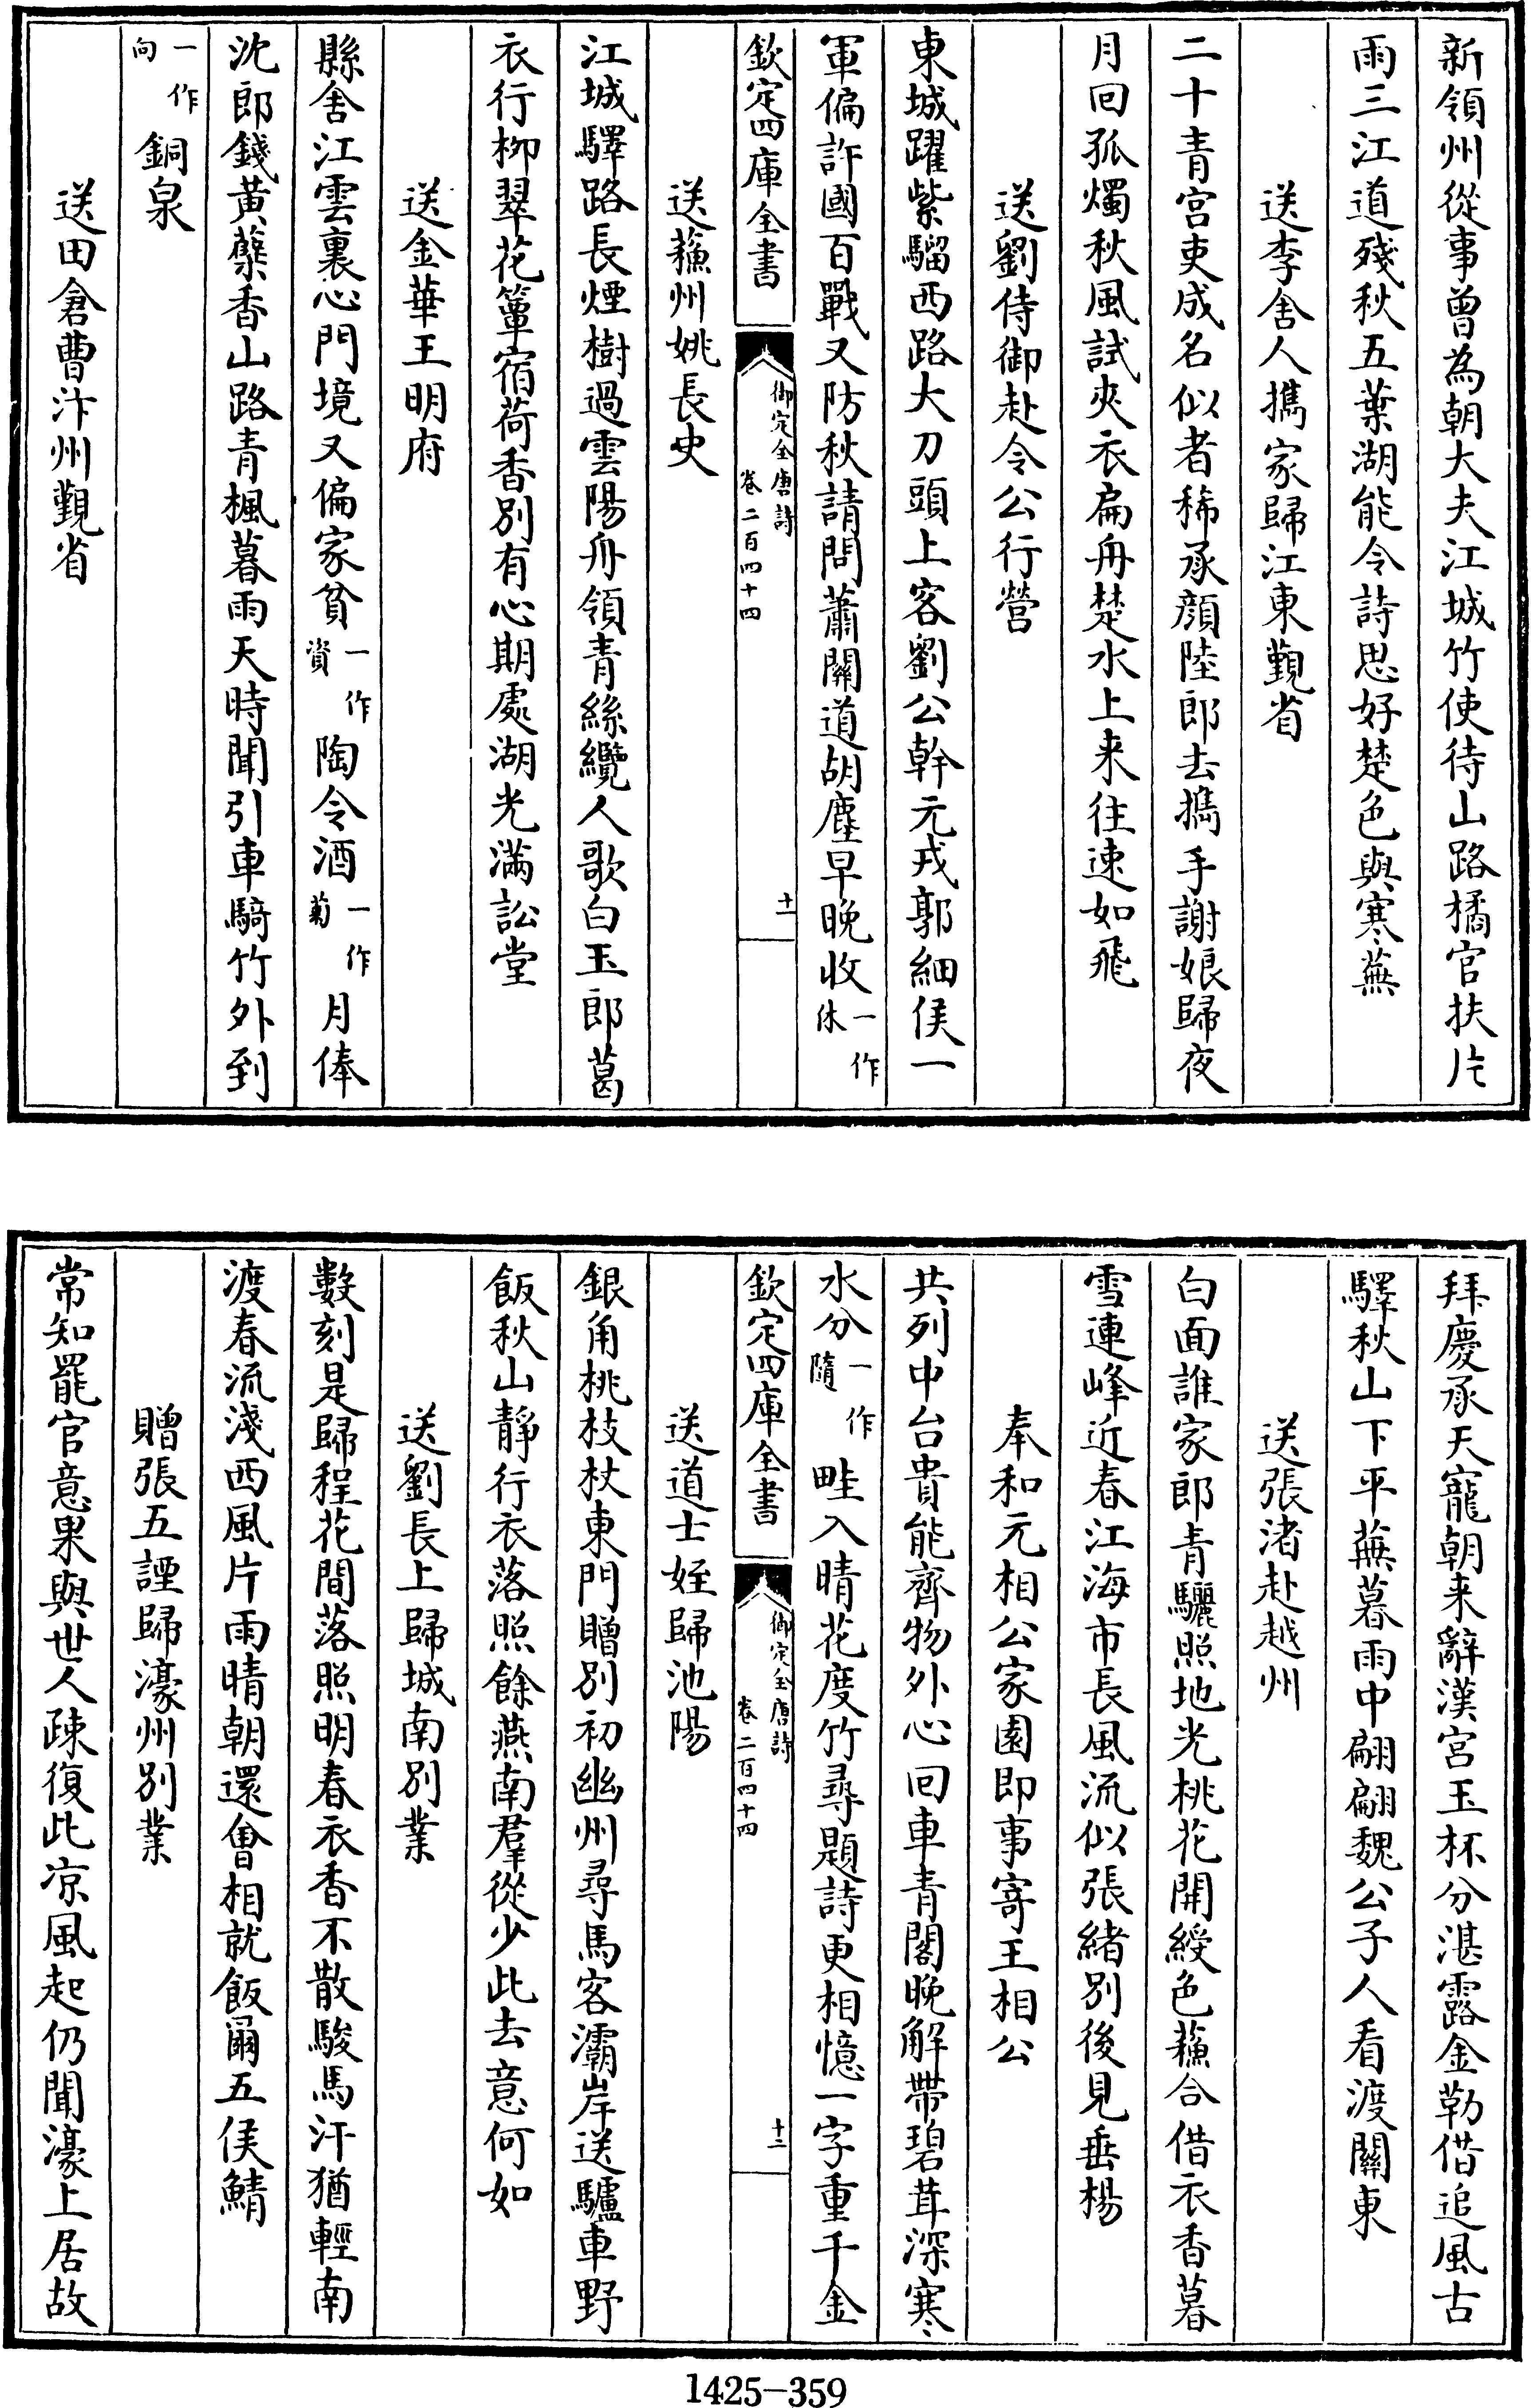 新領州從事曾為朝大夫江城竹使待山路橘官扶片
雨三江道殘秋五葉湖能令詩思好楚色與寒蕪
送李舍人攜家歸江東覲省
二十青宮吏成名似者稀承顔陸郎去擕手謝娘歸夜
月回孤燭秋風試夾衣扁舟楚水上来往速如飛
送劉侍御赴令公行營
東城躍紫騮西路大刀頭上客劉公幹元戎郭細侯一
軍偏許國百戰又防秋請問蕭關道胡塵早晚收一作休
欽定四庫全書
御定全唐詩
卷二百四十四
十一
送蘇州姚長史
江城驛路長煙樹過雲陽舟領青絲纜人歌白玉郎葛
衣行柳翠花簟宿荷香別有心期處湖光滿訟堂
送金華王明府
縣舍江雲裏心門境又偏家貧一作資陶令酒一作菊月俸
沈郎錢黄蘗香山路青楓暮雨天時聞引車騎竹外到
一作向銅泉
送田倉曹汴州覲省
拜慶承天寵朝来辭漢宮玉杯分湛露金勒借追風古
驛秋山下平蕪暮雨中翩翩魏公子人看渡關東
送張渚赴越州
白面誰家郎青驪照地光桃花開綬色蘇合借衣香暮
雪連峰近春江海市長風流似張緒別後見垂楊
奉和元相公家園即事寄王相公
共列中台貴能齊物外心回車青閣晚解帶碧茸深寒
水分一作隨畦入晴花度竹尋題詩更相憶一字重千金
欽定四庫全書
御定全唐詩
卷二百四十四
十二
送道士姪歸池陽
銀角桃枝杖東門贈別初幽州尋馬客灞岸送驢車野
飯秋山靜行衣落照餘燕南羣從少此去意何如
送劉長上歸城南別業
數刻是歸程花間落照明春衣香不散駿馬汗猶輕南
渡春流淺西風片雨晴朝還會相就飯爾五侯鯖
贈張五諲歸濠州別業
常知罷官意果與世人疎復此凉風起仍聞濠上居故
1425-359